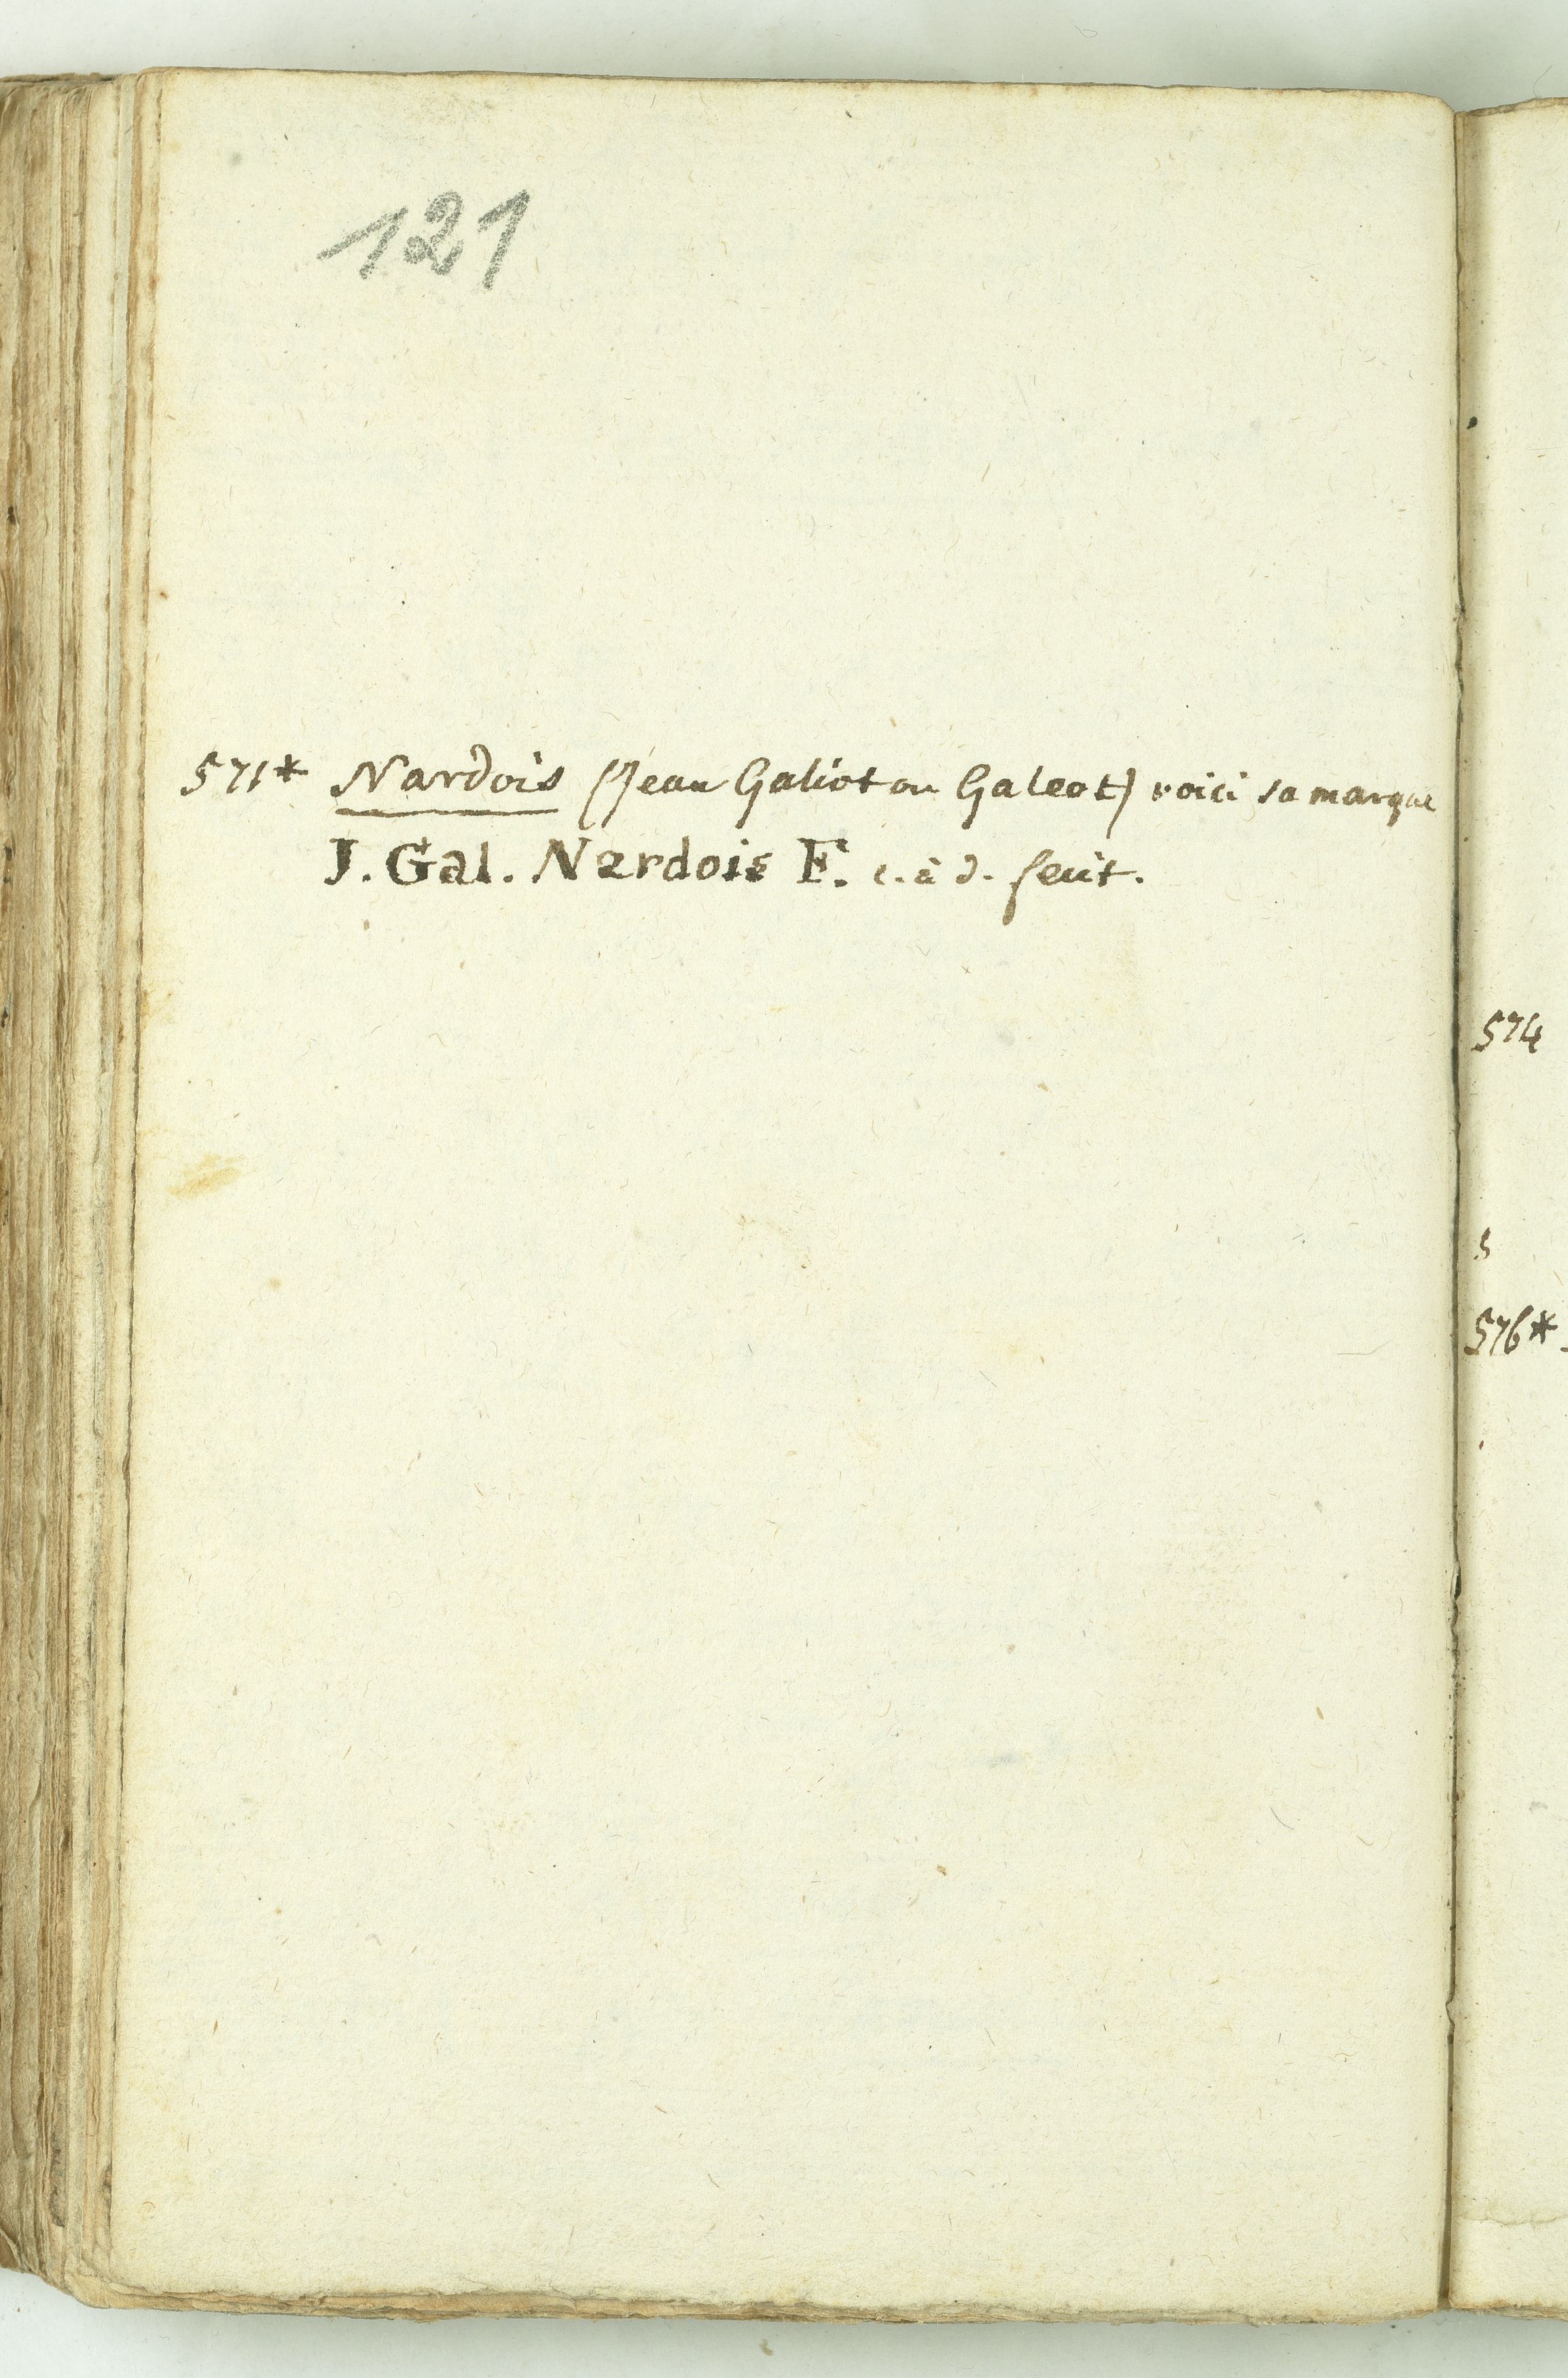 121
571* Nardois (Jean Galiot ou Galeot) voici sa marque
J. Gal. Nardois F. c. à d. fecit.
574
5
576*